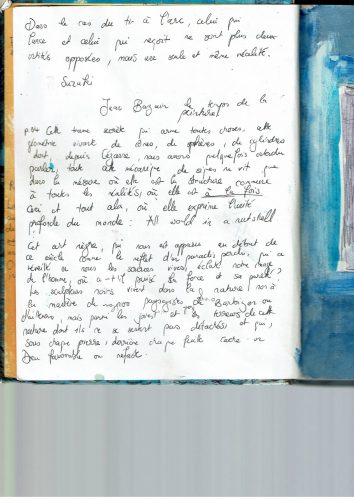 Dans le cas du tir à l'arc, celui qui
lance et celui qui reçoit ne sont plus deux
entités opposées, mais une seule et même réalité.
Suzuki
Jean Bazaine le temps de la
peinture
Cette trame secrète qui arme toutes choses, cette
géométrie vivante de cônes, de sphères, de cylindres
dont, depuis Cézanne, nous avons quelquefois entendu
parler, toute cette de signes ne vit que
dans la mesure où elle est la structure commune
à toutes les réalités, où elle est à la fois
ceci et tout cela, où elle exprime l'unité
profonde du monde : All world in a nutshell
Cet art nègre, qui nous est apparu en début de
ce siècle comme le reflet d'un paradis perdu, qui a
révélé en nous les sources vives, éclaté notre image
de l'homme, où a-t-il puisé sa force et sa pureté ?
Les sculpteurs noirs vivent dans la nature non à
la manière de nos paysagistes de Barbizon ou
d'ailleurs, mais parmi les joies et les terreurs de cette
nature dont ils ne se sentent pas détachés et qui,
sous chaque pierre, derrière chaque feuille cache un
Dieu favorable ou néfaste.